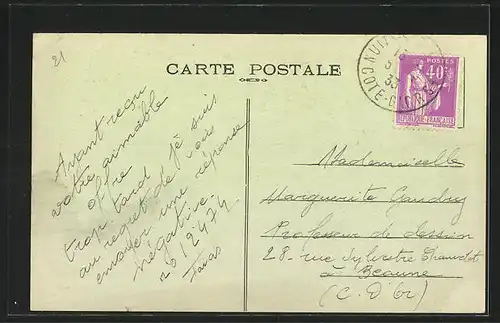 21
CARTE POSTALE
NUITS
COTE-D'OR
33
POSTES
40c
REPUBLIQUE FRANÇAISE
Ayant reçu
votre aimable
offre
trop tard je suis
au regret de vous
envoyer une réponse
négative.
Mademoiselle
Marguerite Gaudry
Professeur de dessin
28 - rue Sylvestre Chauvelot
à Beaune
(C. D'Or)